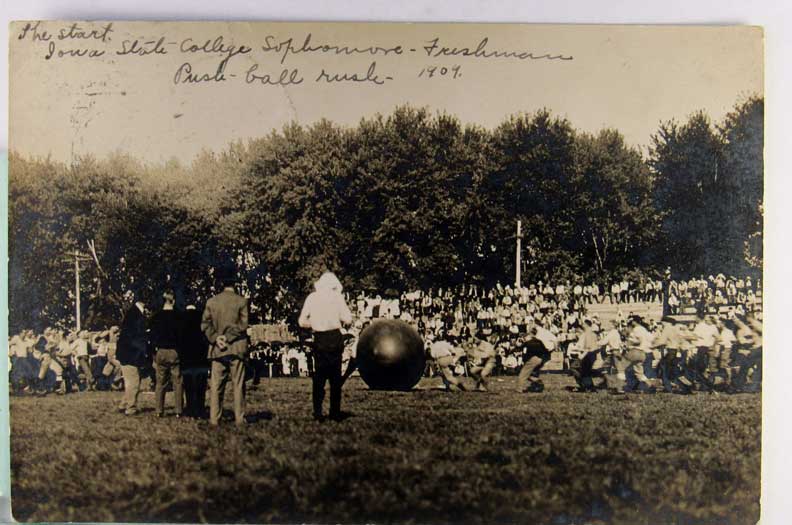 The start.
Iowa State College Sophomore - Freshman
Push - ball rush - 1909.